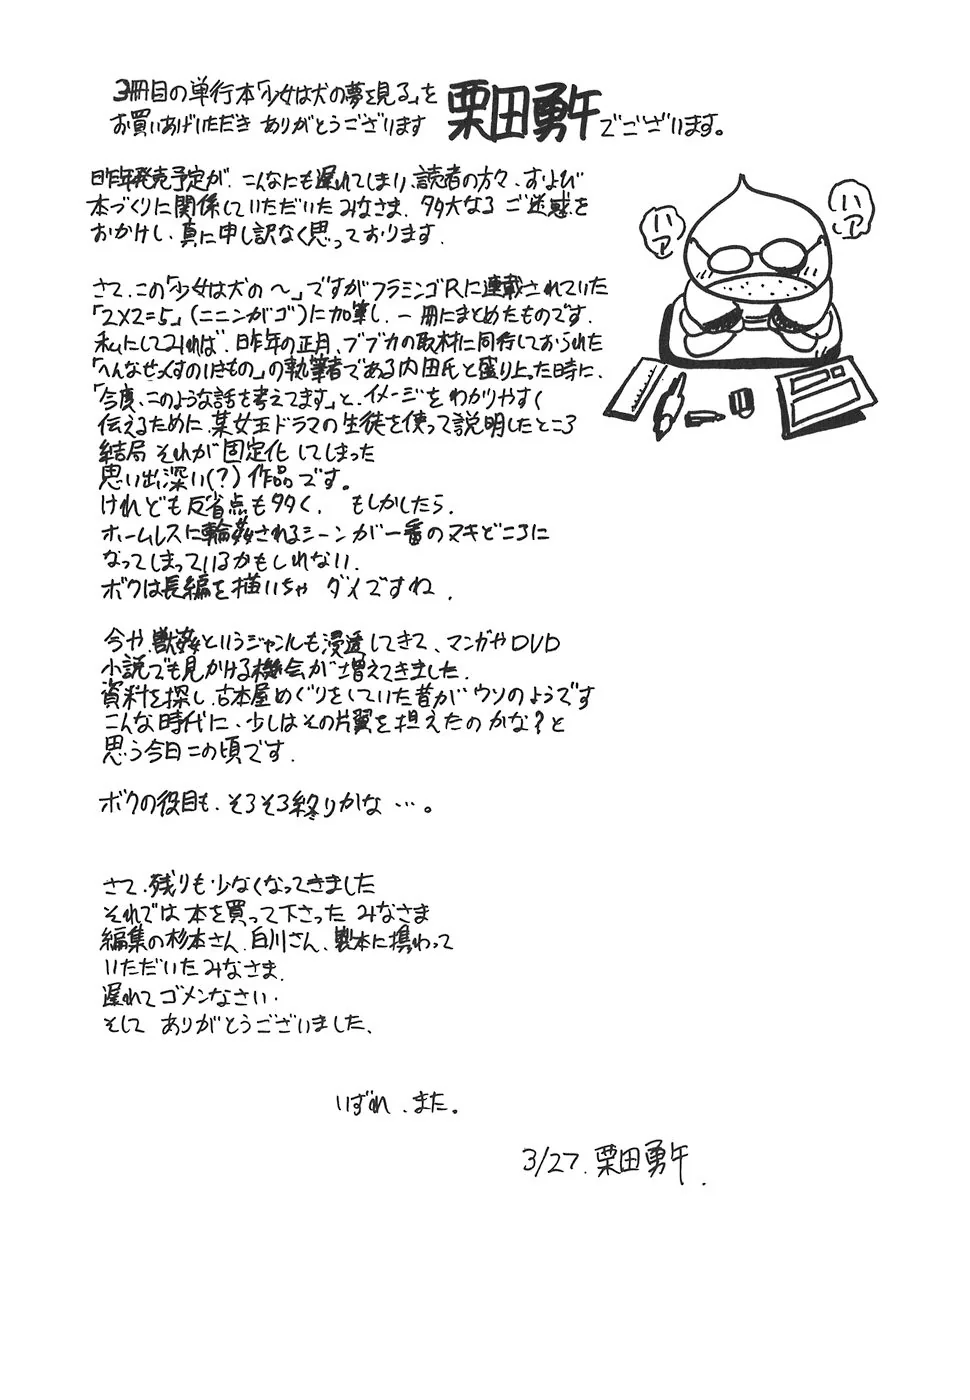 3冊目の単行本「少女は犬の夢を見る。」を
お買いあげいただき ありがとうございます 栗田勇午でございます。
昨年発売予定が、こんなにも遅れてしまい、読者の方々、および
本づくりに関係していただいたみなさま、多大なるご迷惑を
おかけし、真に申し訳なく思っております。
ハァ
ハァ
さて、この「少女は犬の〜」ですがフラミンゴRに連載されていた
「2X2=5」(ニニンがゴ)に加筆し、一冊にまとめたものです。
私にしてみれば、昨年の正月、ブブカの取材に同行しておられた
「へんなせっくすのいきもの」の執筆者である内田氏と盛り上った時に、
「今度、このような話を考えてます」と、イメージをわかりやすく
伝えるために、某女王ドラマの生徒を使って説明したところ
結局 それが固定化してしまった
思い出深い(?)作品です。
けれども反省点も多く、 もしかしたら、
ホームレスに輪姦されるシーンが一番のヌキどころに
なってしまっているかもしれない。
ボクは長編を描いちゃ ダメですね。
今や、獣姦というジャンルも浸透してきて、マンガやDVD
小説でも見かける機会が増えてきました。
資料を探し、古本屋めぐりをしていた昔が ウソのようです
こんな時代に、少しはその片翼を担えたのかな?と
思う今日この頃です。
ボクの役目も、そろそろ終りかな…。
さて、残りも少なくなってきました
それでは 本を買って下さった みなさま
編集の杉本さん、白川さん、製本に携わって
いただいたみなさま、
遅れて ゴメンなさい。
そして ありがとうございました、
いずれ、また。
3/27. 栗田勇午.